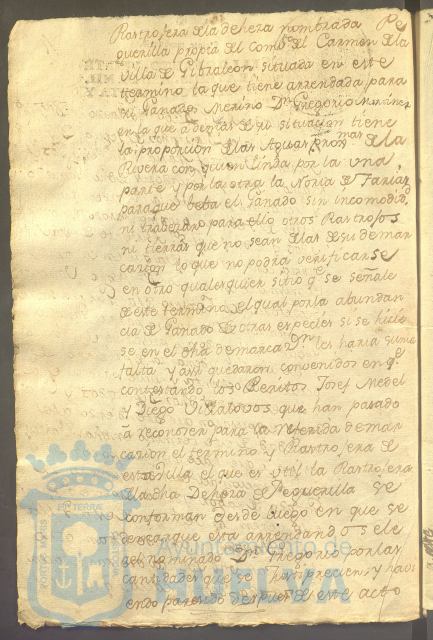 Rastrojera dela dehera nombrada Pe
querilla propia del Combto. del Carmen dela
Villa de Gibraleon situada en este
termino la que tiene arrendada para
su Ganado Merino Dn. Gregorio Martinez
en la que ademas de su situacion tiene
la proporcion delas Aguas Proxmas. dela
Rivera con quien linda por la una
parte y por la otra la Noria de Farias
para que beba el Ganado sin incomodidd.
ni trabezaro para ello otros Rastrojos
ni tierras que no sean delas desu demar
cacion lo que no podria verificarse
en otro qualesquier sitio q. se señale
de este termino, el qual por la abundan
cia de Ganado de otras especies si se hicie
se en el dha demarcacn. les haria suma
falta y asi quedaron convenidos en q.
contestando los Peritos Josef Medel
y Diego Villalovos que han pasado
a reconoser para la referida demar
cacion el termino y Rastrojera de
esta Villa el que es util la Rastrojera
de la dha Dehera de Pequerilla se
conforman desde luego en que se
desarque esta arrendandosele
al nominado Dn. Gregorio por las
cantidades que se aprecien; y havi
endo parecido despues de este acto
Ayuntamiento de
HUELVA